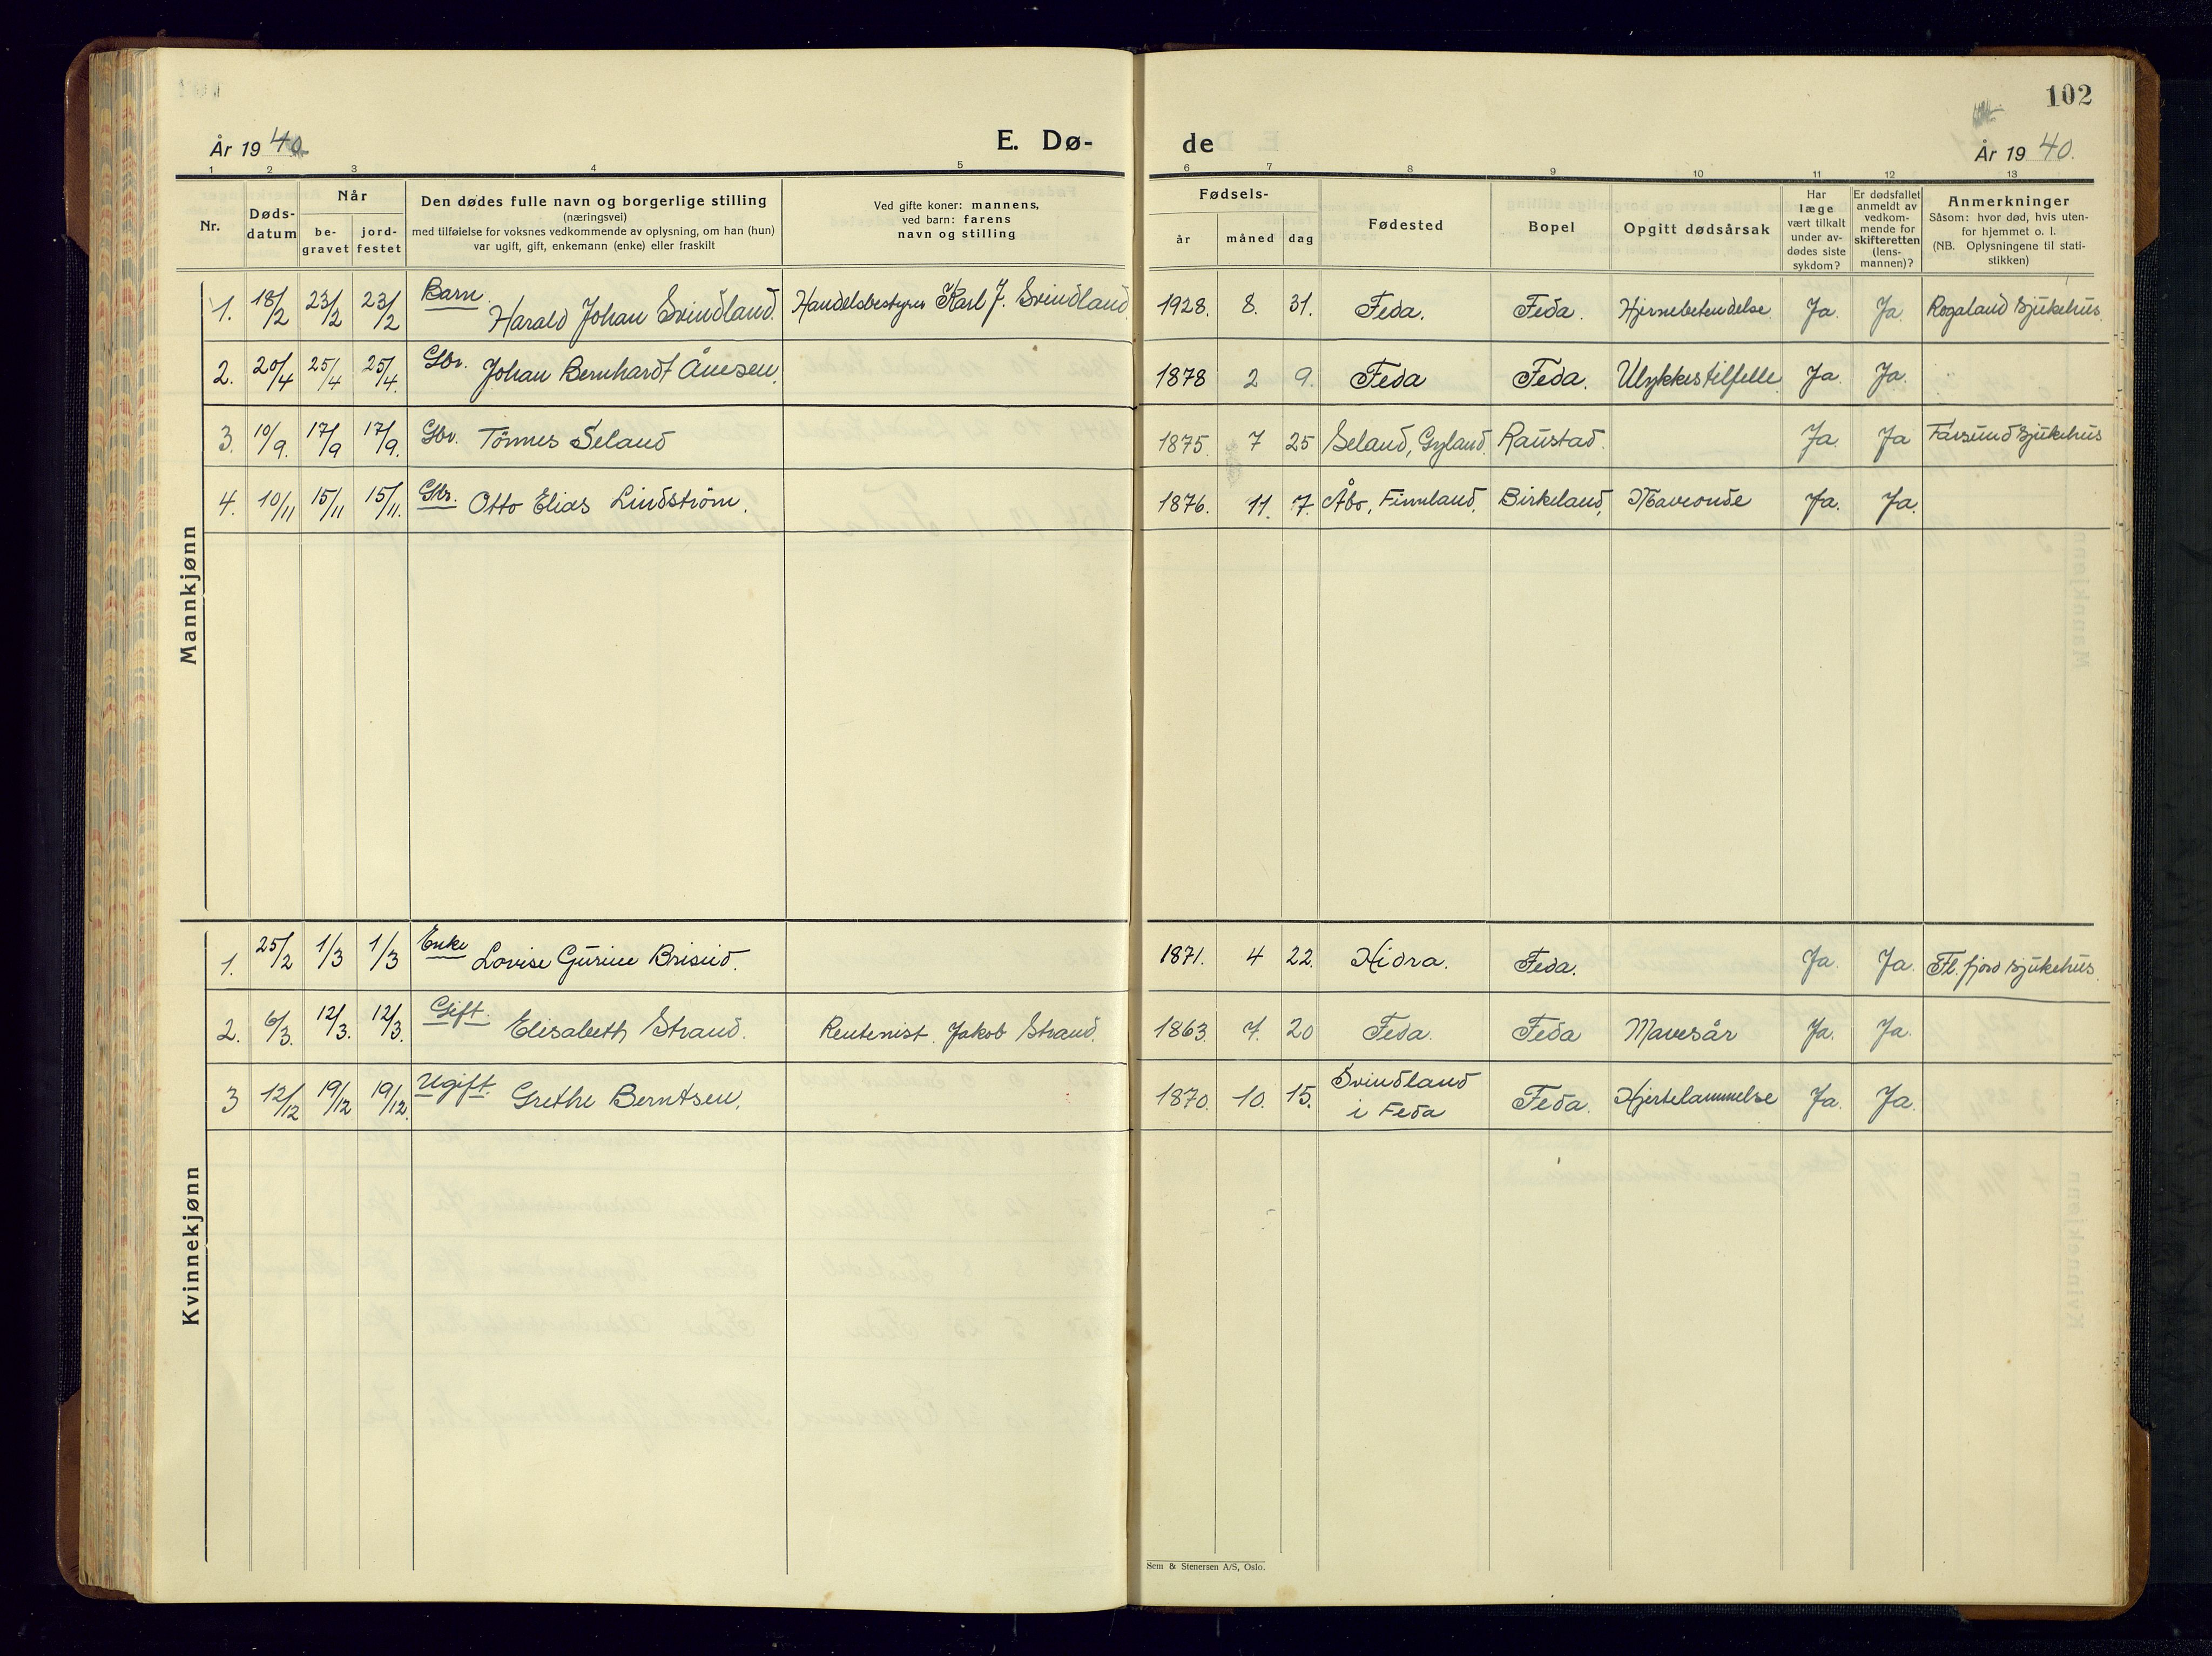 102
År 1940.
E. Dø-
de
År 1940.
1 2 3 4 5 6 7 8 9 10 11 12 13
Nr.
Døds-
datum
Når
be-
gravet
jord-
festet
Den dødes fulle navn og borgerlige stilling
(næringsvei)
med tilføielse for voksnes vedkommende av oplysning, om han (hun)
var ugift, gift, enkemann (enke) eller fraskilt
Ved gifte koner: mannens,
ved barn: farens
navn og stilling
Fødsels-
år måned dag
Fødested
Bopel
Opgitt dødsårsak
Har
læge
vært tilkalt
under av-
dødes siste
sykdom?
Er dødsfallet
anmeldt av
vedkom-
mende for
skifteretten
(lens-
mannen)?
Anmerkninger
Såsom: hvor død, hvis uten-
for hjemmet o. l.
(NB. Oplysningene til stati-
stikken)
Mannkjønn
1. 18/2 23/2 23/2 Barn Harald Johan Svindland. Handelsbestyrer Karl J. Svindland. 1928. 8. 31. Feda. Feda. Hjernebetendelse. Ja. Ja. Rogaland sjukehus.
2. 20/4 25/4 25/4. Gbr. Johan Bernhardt Ånesen. 1878 2 9. Feda Feda. Ulykkestilfelle Ja. Ja.
3. 10/9. 17/9 17/9. Gbr. Tönnes Seland 1875. 7 25 Seland, Gyland. Raustad. Ja. Ja Farsund sjukehus
4. 10/11 15/11 15/11. Gbr. Otto Elias Lindström. 1876. 11. 7. Åbo, Finnland. Birkeland. Mavronde Ja. Ja.
Kvinnekjønn
1. 25/2 1/3 1/3 Enke Lovise Gurine 1871. 4 22. Hidra. Feda. Ja. Ja. Fl. fjord sjukehus
2. 6/3. 12/3. 12/3. Gift. Elisabeth Strand. Rentenist. Jakob Strand. 1863. 7. 20 Feda. Feda Mavesår Ja. Ja.
3 12/12 19/12 19/12. Ugift. Grethe Berntsen. 1870. 10. 15. Svindland
i Feda Feda. Hjertelammelse Ja. Ja.
Sem & Stenersen A/S, Oslo.